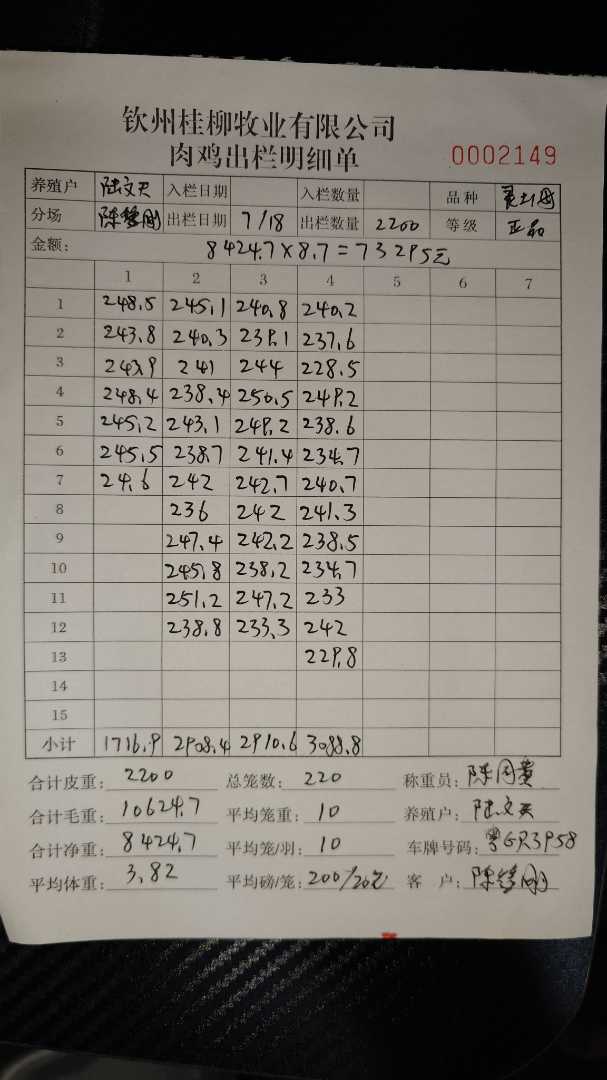 钦州桂柳牧业有限公司
肉鸡出栏明细单 0002149
养殖户 陆文天 入栏日期 入栏数量 品种
分场 出栏日期 7/18 出栏数量 2200 等级 正品
金额: 8424.7×8.7=73295元
1 2 3 4 5 6 7
1 248.5 245.1 240.8 240.2
2 243.8 240.3 239.1 237.6
3 241 244 228.5
4 248.4 238.4 250.5 249.2
5 245.2 243.1 249.2 238.6
6 245.5 238.7 241.4 234.7
7 24.6 242 242.7 240.7
8 236 242 241.3
9 247.4 242.2 238.5
10 245.8 238.2 234.7
11 251.2 247.2 233
12 238.8 233.3 242
13 229.8
14
15
小计 1716.9 2908.4 2910.6 3088.8
合计皮重: 2200 总笼数: 220 称重员: 陈
合计毛重: 10624.7 平均笼重: 10 养殖户: 陆文天
合计净重: 8424.7 平均笼/羽: 10 车牌号码: 粤GR3P58
平均体重: 3.82 平均磅/笼: 200/20笼 客户: 陈